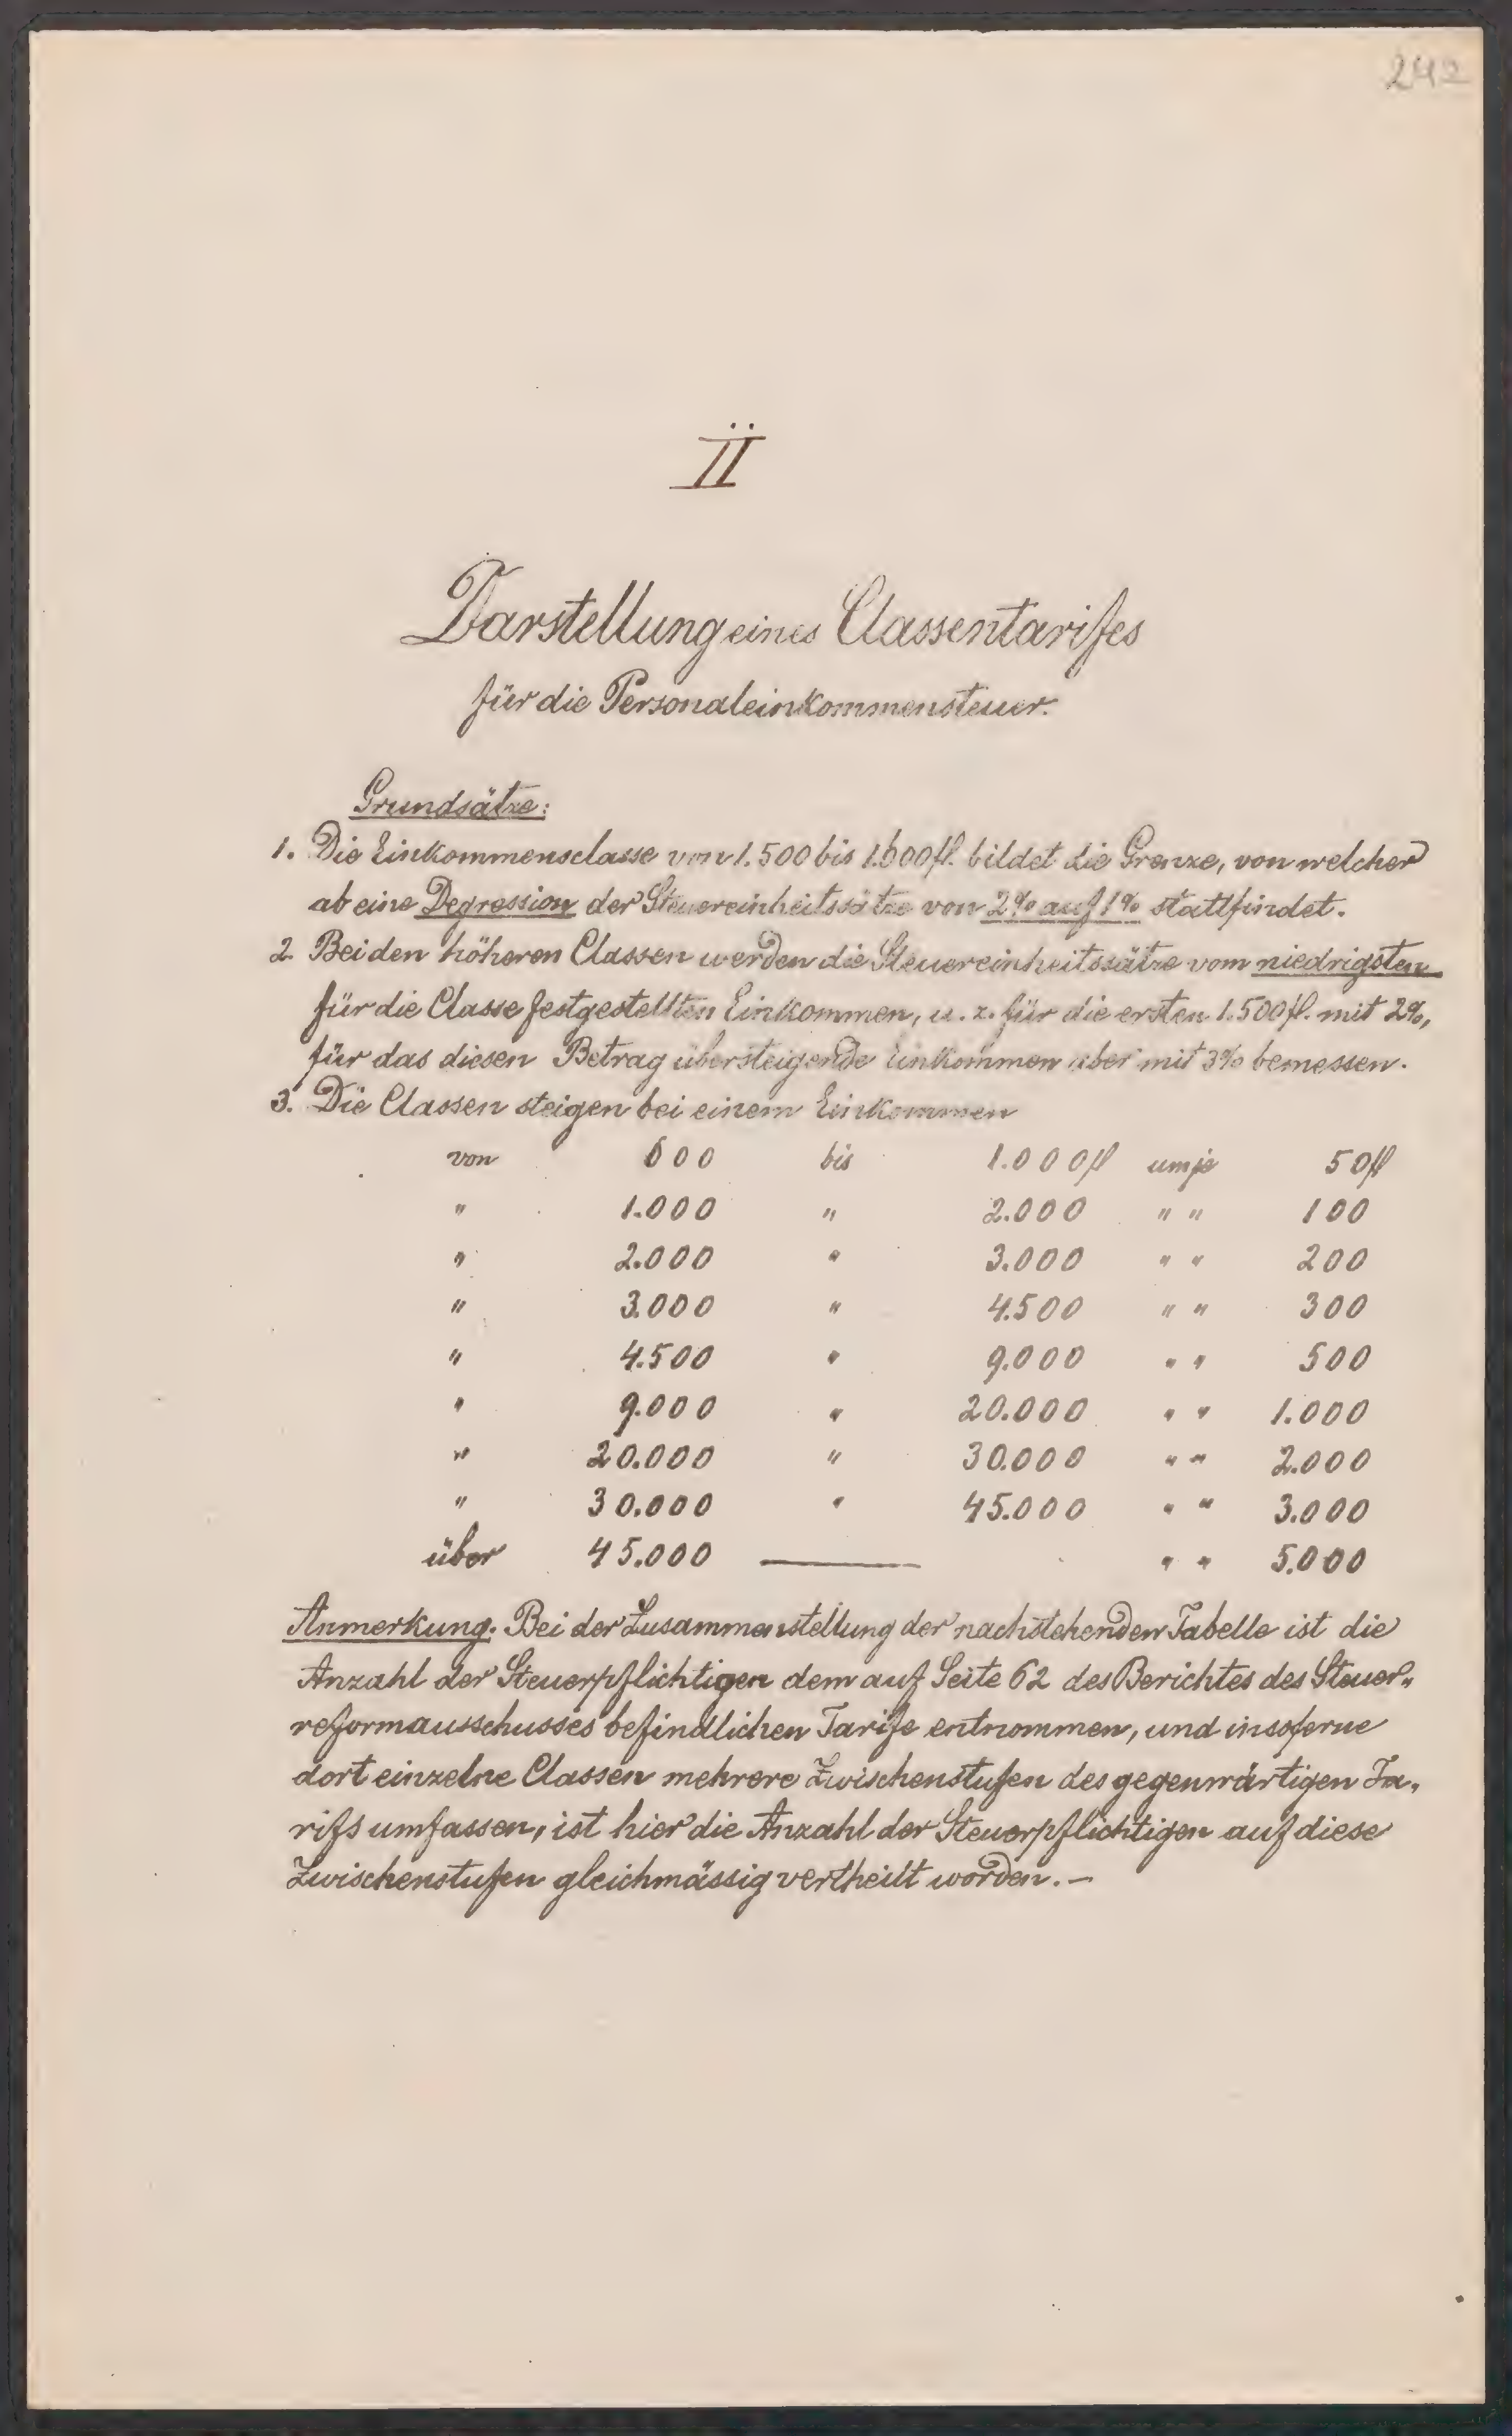 242
II
Darstellung eines Classentarifes
für die Personaleinkommensteuer.
Grundsätze:
1. Die Einkommensclasse von 1.500 bis 1.600 fl. bildet die Grenze, von welcher
ab eine Degression der Steuereinheitssätze von 2% auf 1% stattfindet.
2. Bei den höheren Classen werden die Steuereinheitssätze vom niedrigsten
für die Classe festgestellten Einkommen, u. z. für die ersten 1.500 fl. mit 2%,
für das diesen Betrag übersteigende Einkommen aber mit 3% bemessen.
3. Die Classen steigen bei einem Einkommen
von 600 bis 1.000 fl um je 50 fl
" 1.000 " 2.000 " " 100
" 2.000 " 3.000 " " 200
" 3.000 " 4.500 " " 300
" 4.500 " 9.000 " " 500
" 9.000 " 20.000 " " 1.000
" 20.000 " 30.000 " " 2.000
" 30.000 " 45.000 " " 3.000
über 45.000 — " " 5.000
Anmerkung. Bei der Zusammenstellung der nachstehenden Tabelle ist die
Anzahl der Steuerpflichtigen dem auf Seite 62 des Berichtes des Steuer„
reformausschusses befindlichen Tarife entnommen, und insoferne
dort einzelne Classen mehrere Zwischenstufen des gegenwärtigen Ta„
rifs umfassen, ist hier die Anzahl der Steuerpflichtigen auf diese
Zwischenstufen gleichmässig vertheilt worden. —